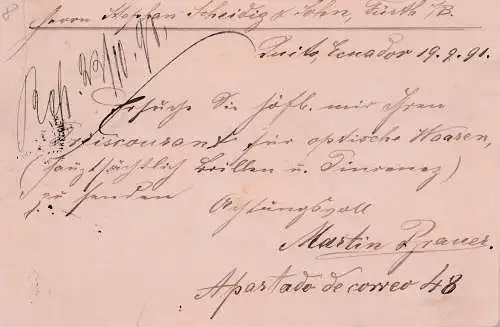 Herrn Stephan Scheidig & Sohn, Fürth i/B.
Quito, Ecuador 19.9.91.
Rep. 23/10.91.
Ersuche Sie höfl. mir Ihren
Preiscourant für optische Waaren,
(hauptsächlich Brillen u. Pincenez)
zu senden
Achtungsvoll
Martin Brauer.
Apartado de correo 48